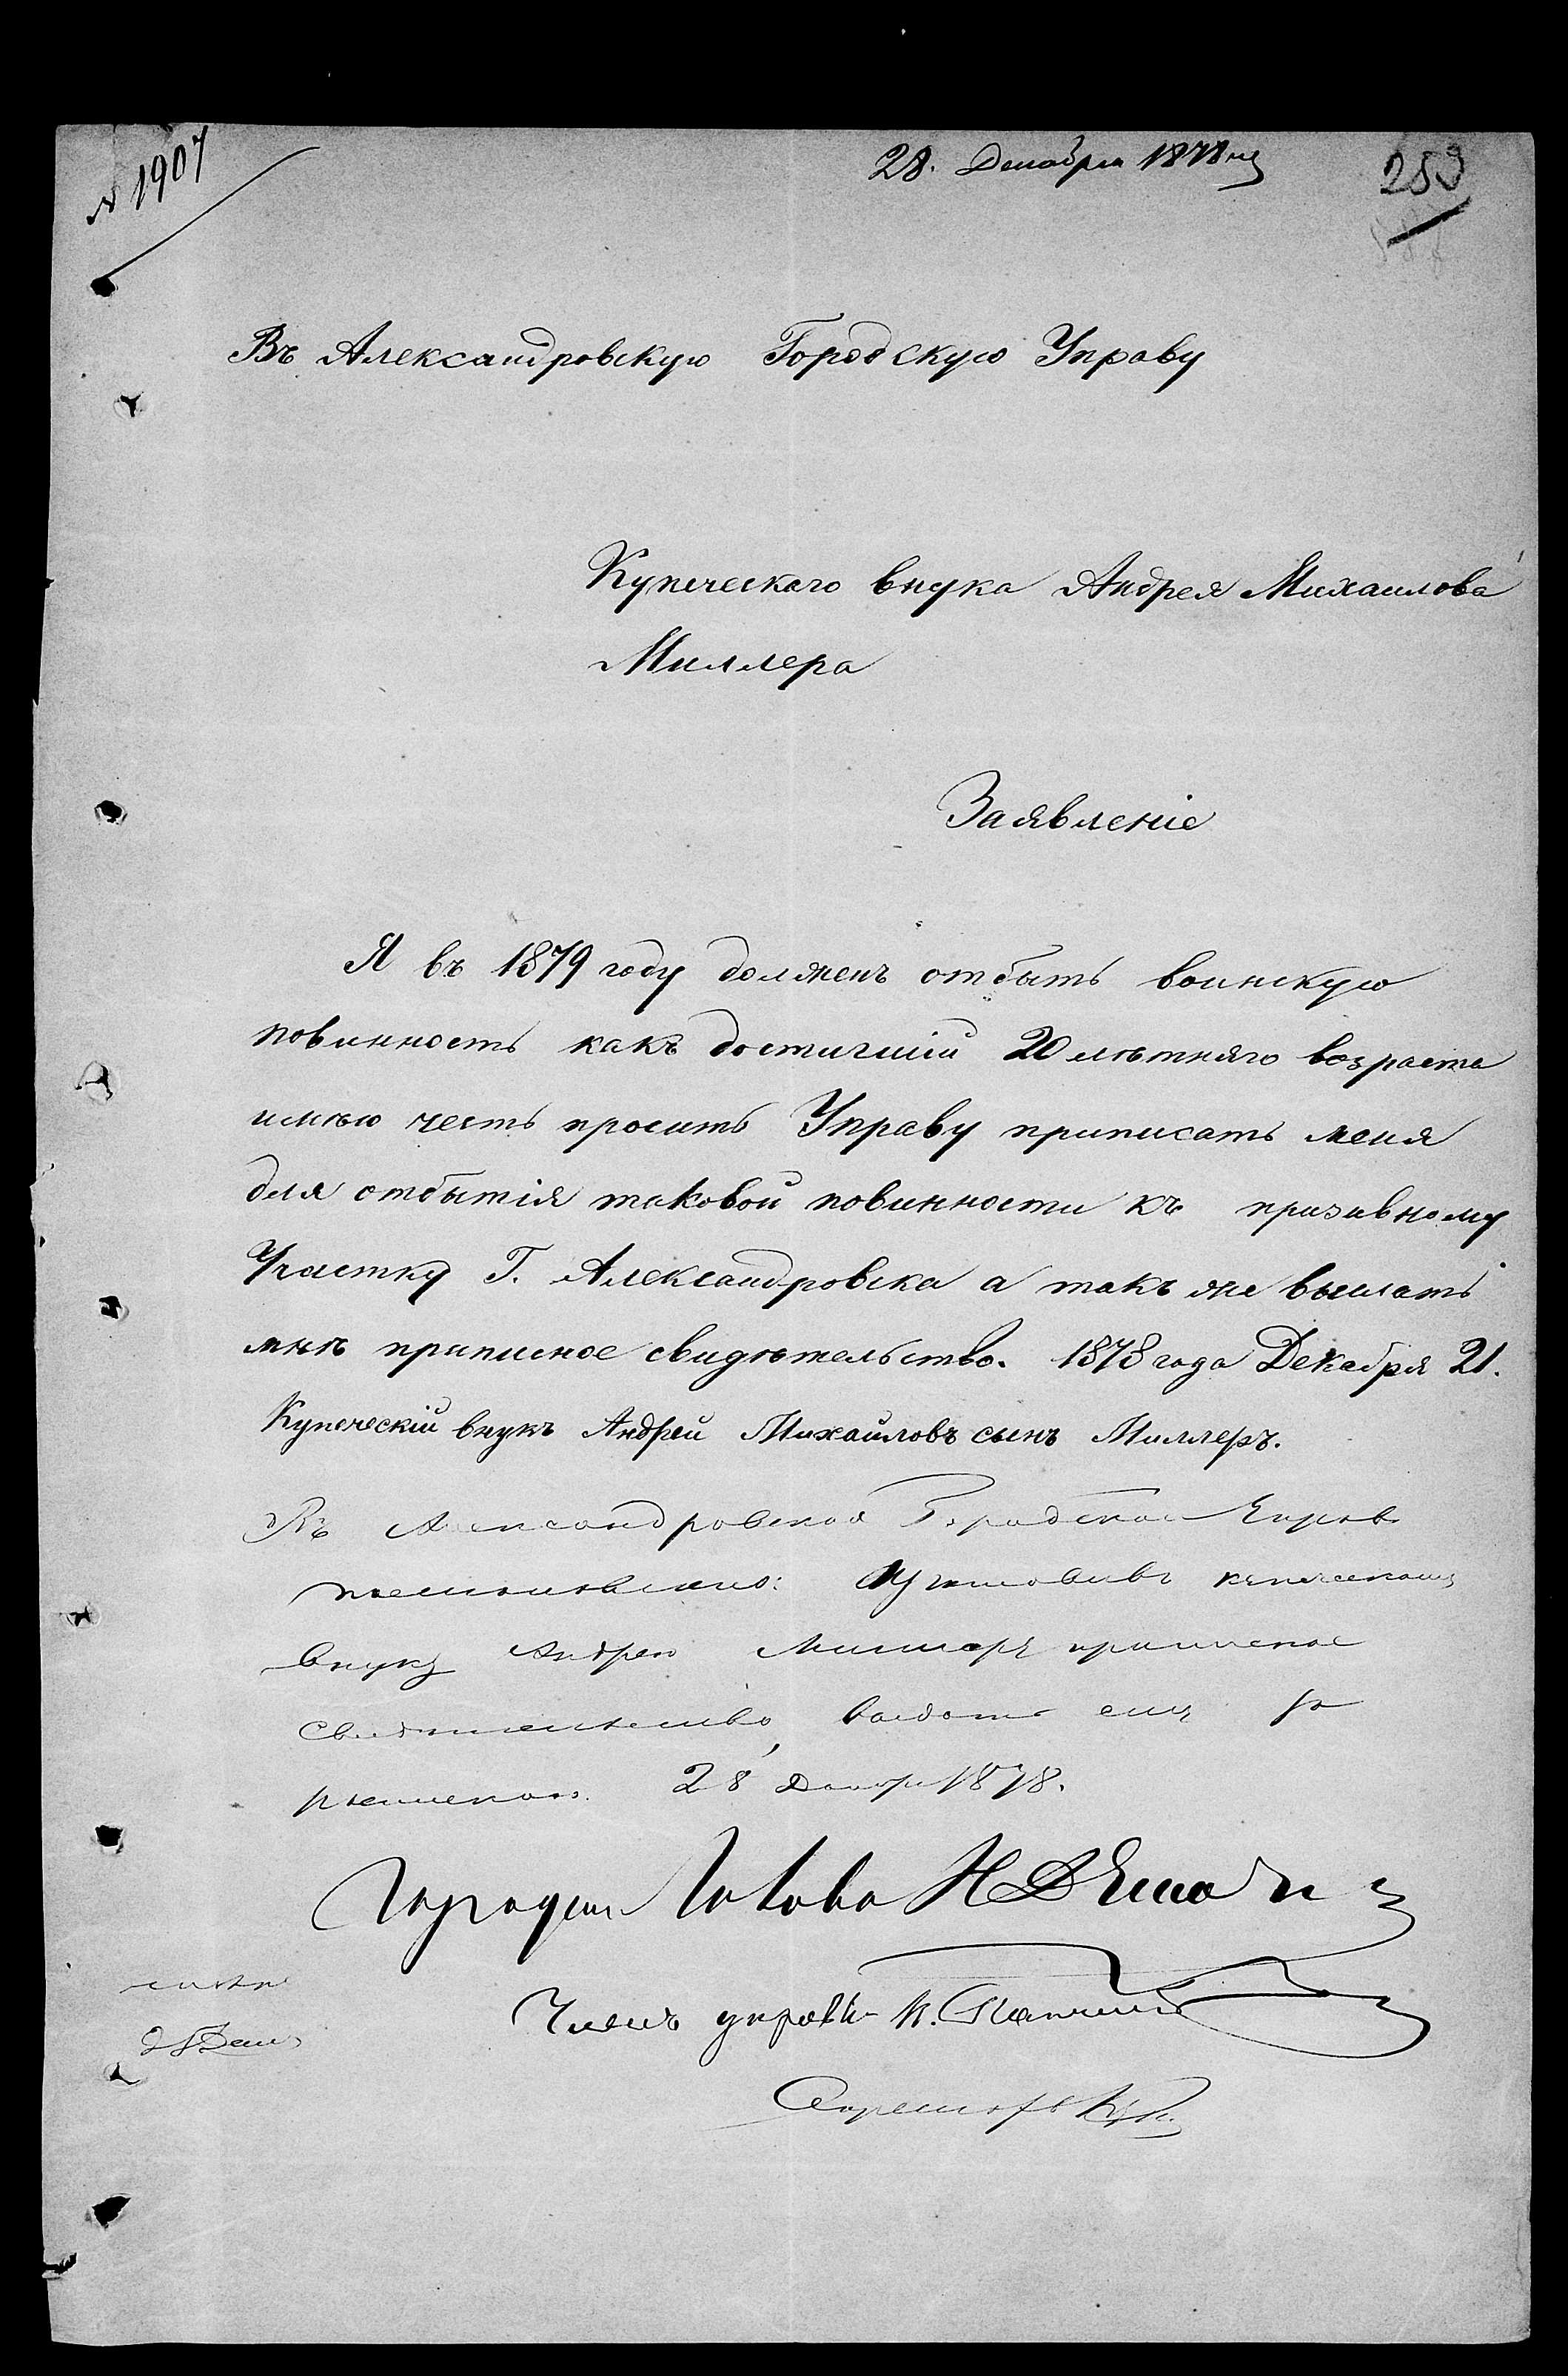 № 1907
28. Декабря 1878 г
253
Въ Александровскую Городскую Управу
Купеческаго внука Андрея Михаилова
Миллера
Заявленіе
Я въ 1879 году долженъ отбыть воинскую
повинность какъ достигшій 20 лѣтняго возраста
имѣю честь просить Управу приписать меня
для отбытія таковой повинности къ призывному
Участку Г. Александровска а такъ же выслать
мнѣ приписное свидѣтельство. 1878 года Декабря 21.
Купеческій внукъ Андрей Михайловъ сынъ Миллеръ.
Въ Александровской Городской Управѣ
постановлено: Изготовивъ купеческому
внуку Андрею Миллеру приписное
свидѣтельство, выдать ему
28 Декабр 1878.
Голова Н
Членъ управы
Секретарь